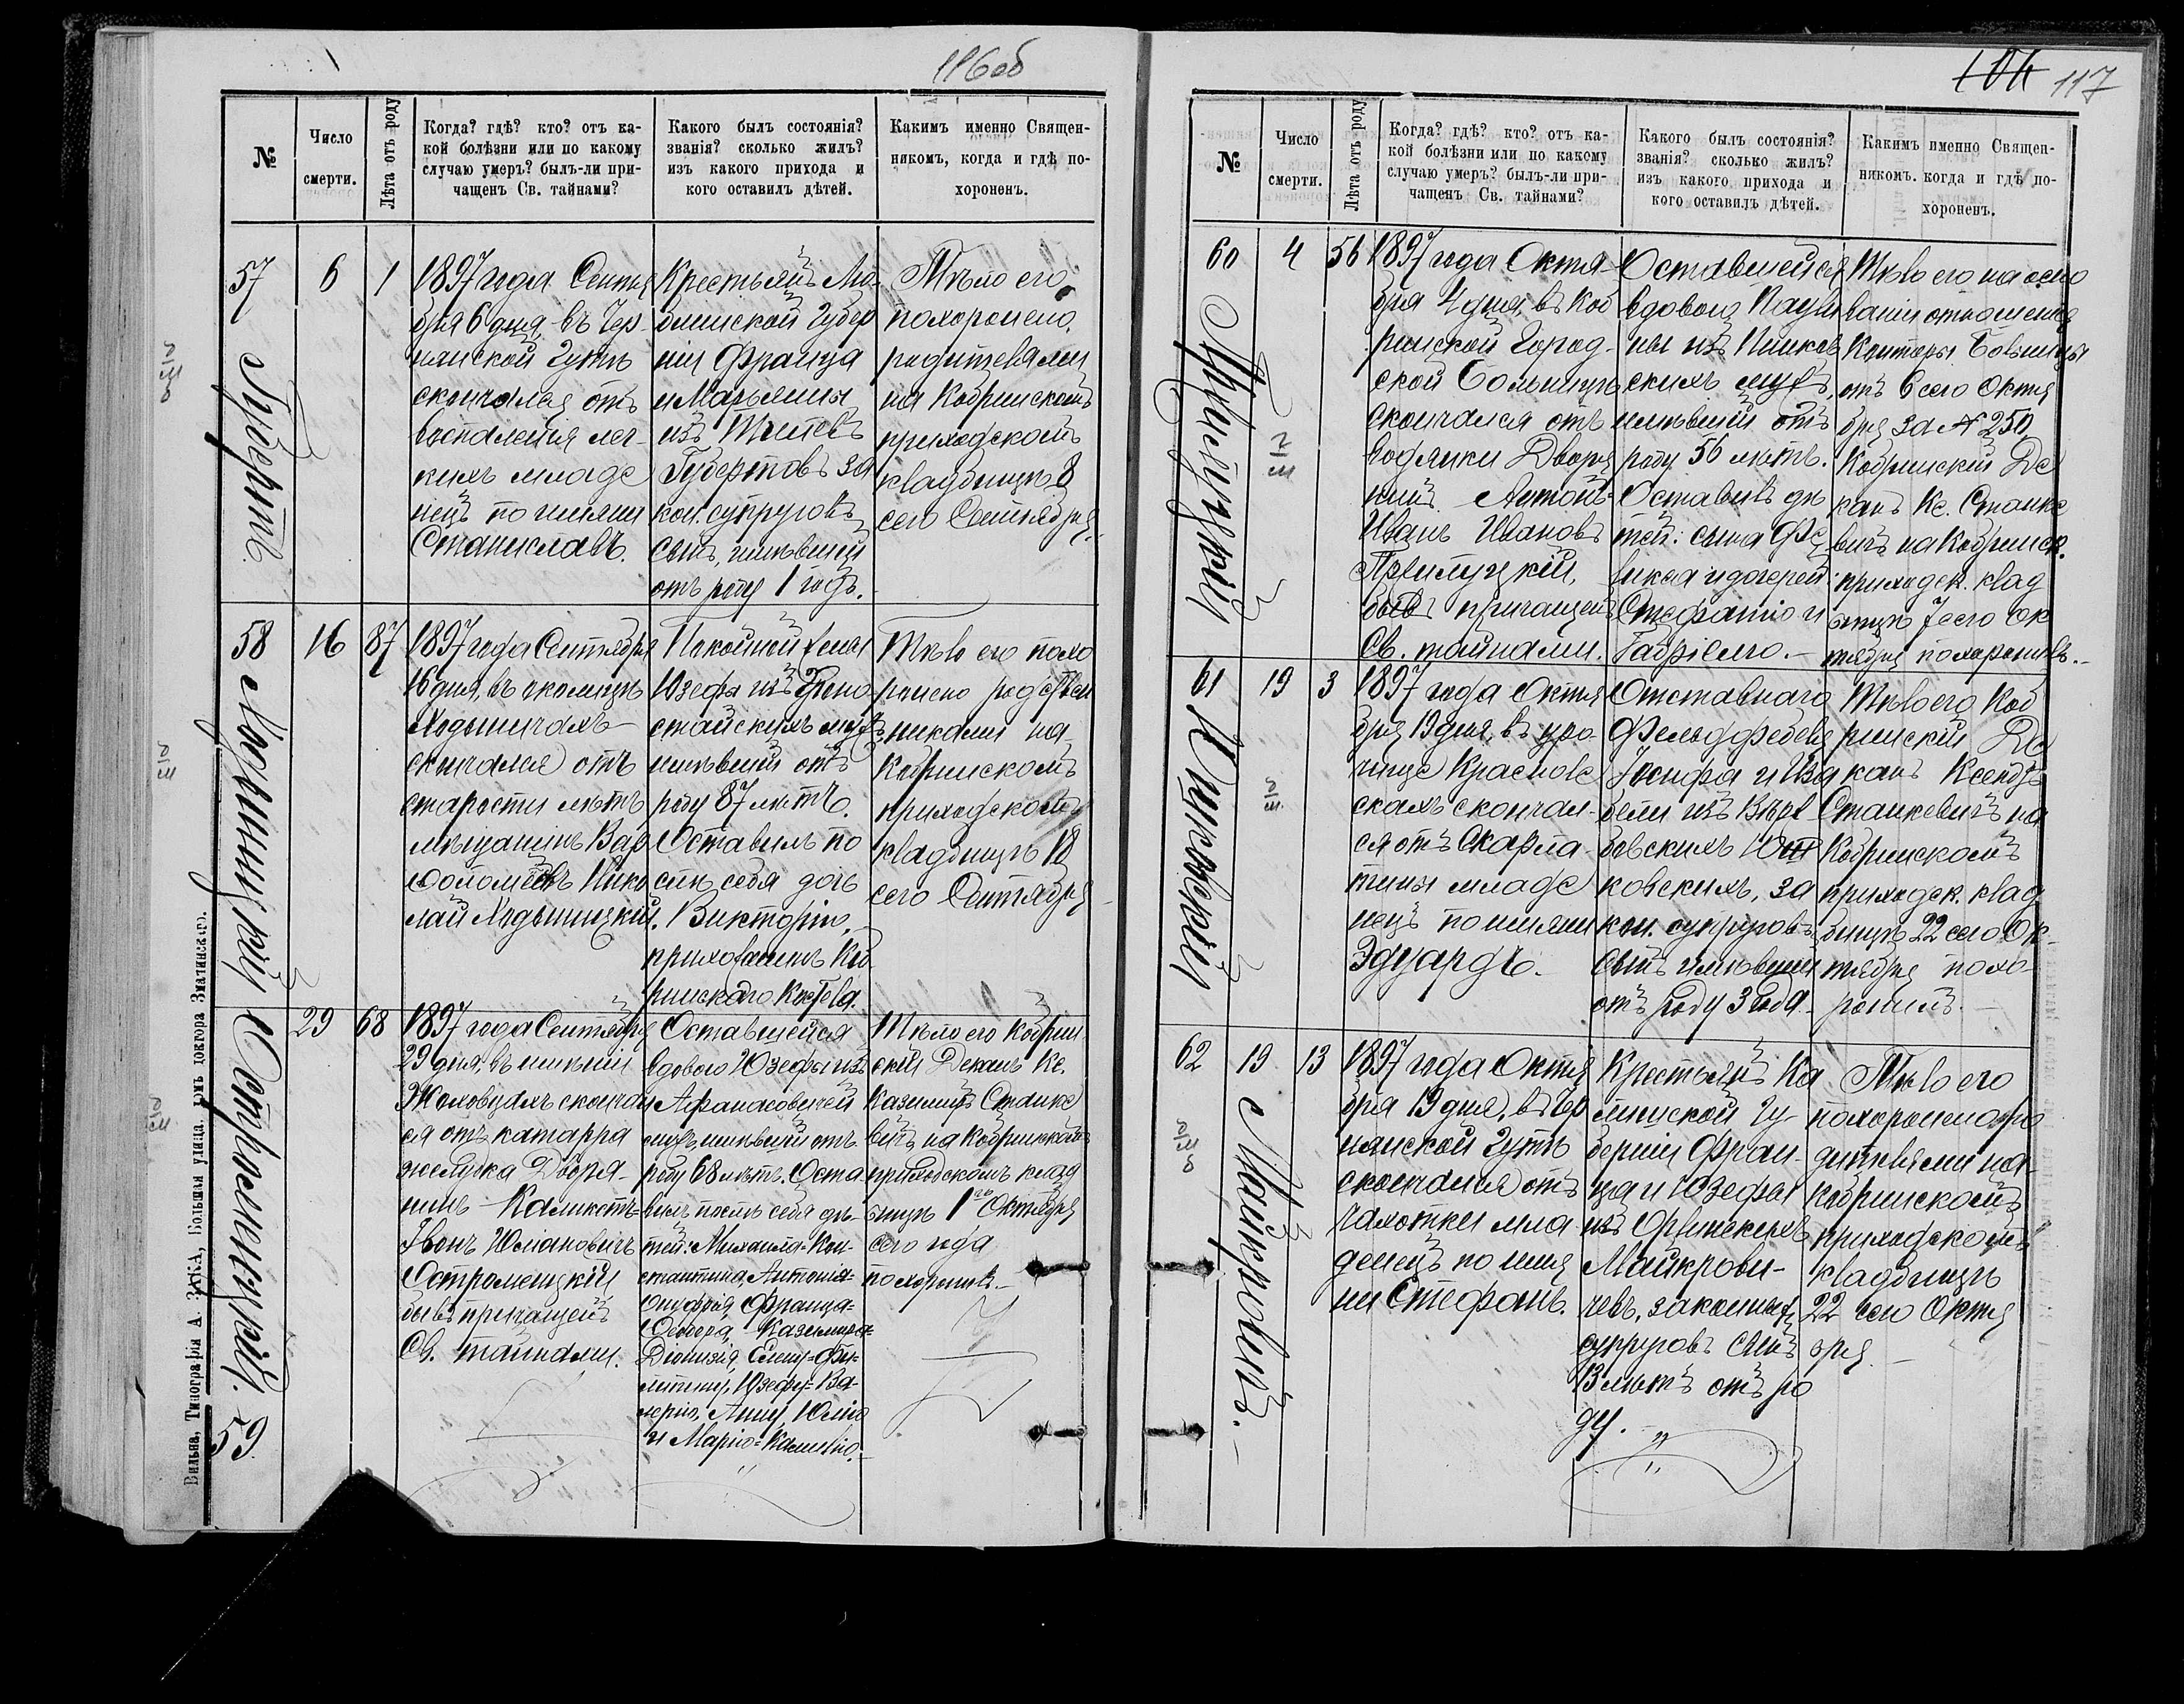 116об
№
Число
смерти.
Лѣта отъ роду
Когда? гдѣ? кто? отъ ка-
кой болѣзни или по какому
случаю умеръ? былъ-ли при-
чащенъ Св. тайнами?
Какого былъ состоянія?
званія? сколько жилъ?
изъ какого прихода и
кого оставилъ дѣтей.
Какимъ именно Священ-
никомъ, когда и гдѣ по-
хороненъ.
57
Губертъ
6
1
1897 года Сентя
бря 6 дня, въ Чер
нянской Гутѣ
скончался отъ
воспаленія лег-
кихъ младе
нецъ по имени
Станиславъ.
Крестьянъ Лю
блинской Губер
ніи Франца
и Марьянны
изъ
Губертовъ за
кон. супруговъ
сынъ, имѣвшій
отъ роду 1 годъ.
Тѣло его
похоронено
родителями
на Кобринскомъ
приходскомъ
кладбищѣ 8
сего Сентября.
58
Ходыницкій
16
87
1897 года Сентября
16 дня, въ околицѣ
Ходыничахъ
скончался отъ
старости лѣтъ
мѣщанинъ Вар
ѳоломеевъ Нико
лай Ходыницкій.
Покойной жены
Юзефы изъ Гроно
стайскихъ мужъ
имѣвшій отъ
роду 87 лѣтъ.
Оставилъ по
слѣ себя дочь
Викторію,
прихожанинъ Коб
ринскаго Костела.
Тѣло его похо
ронено родствен
никами на
Кобринскомъ
приходскомъ
кладбищѣ 18
сего Сентября
59
Островмечицкій.
29
68
1897 года Сентября
29 дня, въ имѣніи
Жоховцахъ сконча
ся отъ катарра
желудка Дворя-
нинъ - Каликстъ=
Ивонъ Юліановичъ
Остромецкій
бывъ причащенъ
Св. тайнами.
Оставшейся
вдовою Юзефы изъ
Афанасовичей
мужъ, имѣвшій отъ
роду 68 лѣтъ. Оста
вилъ послѣ себя дѣ-
тей: Михаила=Кон-
стантина, Антонія=
Онуфрія, Франца=
Ѳеодора, Казимира=
Діонизія, Елену=
Юзефу=Ва-
лерію, Анну, Юлію
и Марію=Камилію.
Тѣло его Кобрин
скій Деканъ Кс.
Казимиръ Станке
вичъ на Кобринскомъ
приходскомъ клад
бищѣ 1го Октября
сего года
похоронилъ.
Вильна, Типографія А. ЗАКА, Большая улица, домъ доктора
104 117
№
Число
смерти.
Лѣта отъ роду
Когда? гдѣ? кто? отъ ка-
кой болѣзни или по какому
случаю умеръ? былъ-ли при-
чащенъ Св. тайнами?
Какого былъ состоянія?
званія? сколько жилъ?
изъ какого прихода и
кого оставилъ дѣтей.
Какимъ именно Священ-
никомъ. когда и гдѣ по-
хороненъ.
60
Прилуцкій
4
56
1897 года Октя-
бря 4 дня, въ Коб
ринской Город-
ской Больницѣ
скончался отъ
водянки Дворя
нинъ Антонъ=
Иванъ Ивановъ
Прилуцкій,
бывъ причащенъ
Св. тайнами.
Оставшейся
вдовою Паули
ны изъ Пинков
скихъ мужъ,
имѣвшій отъ
роду 56 лѣтъ.
Оставивъ дѣ
тей: сына Фе
ликса и дочерей:
Стефанію и
Габріелю.
Тѣло его на осно
ваніи отношенія
Конторы Больницы
отъ 6 сего Октя
бря за № 250
Кобринскій Де
канъ Кс. Станке
вичъ на Кобринск.
приходск. клад
бищѣ 7 сего Ок
тября похоронилъ.
61
Юшковскій
19
3
1897 года Октя
бря 19 дня, въ уро
чище
скахъ скончал-
ся отъ Скарла-
тины младе
нецъ по имени
Эдуардъ.
Отставнаго
Фельдфебеля
Іосифа и Иза
бели изъ
бовскихъ Юш
ковскихъ, за
кон. супруговъ
сынъ имѣвшій
отъ роду 3 года.
Тѣло его Коб
ринскій Де
канъ Ксендзъ
Станкевичъ на
Кобринскомъ
приходск. клад
бищѣ 22 сего Ок-
тября похо-
ронилъ.
62
Майкровичъ.
19
13
1897 года Октя
бря 19 дня, въ Чер
нянской Гутѣ
скончался отъ
чахотки мла
денецъ по име
ни Стефанъ.
Крестьянъ Ка
лишской Гу-
берніи Фран-
ца и Юзефы
изъ
Майкрови-
чевъ, законныхъ
супруговъ сынъ
13 лѣтъ отъ ро
ду.
Тѣло его
похоронено ро
дителями на
Кобринскомъ
приходскомъ
кладбищѣ
22 сего Октя
бря.